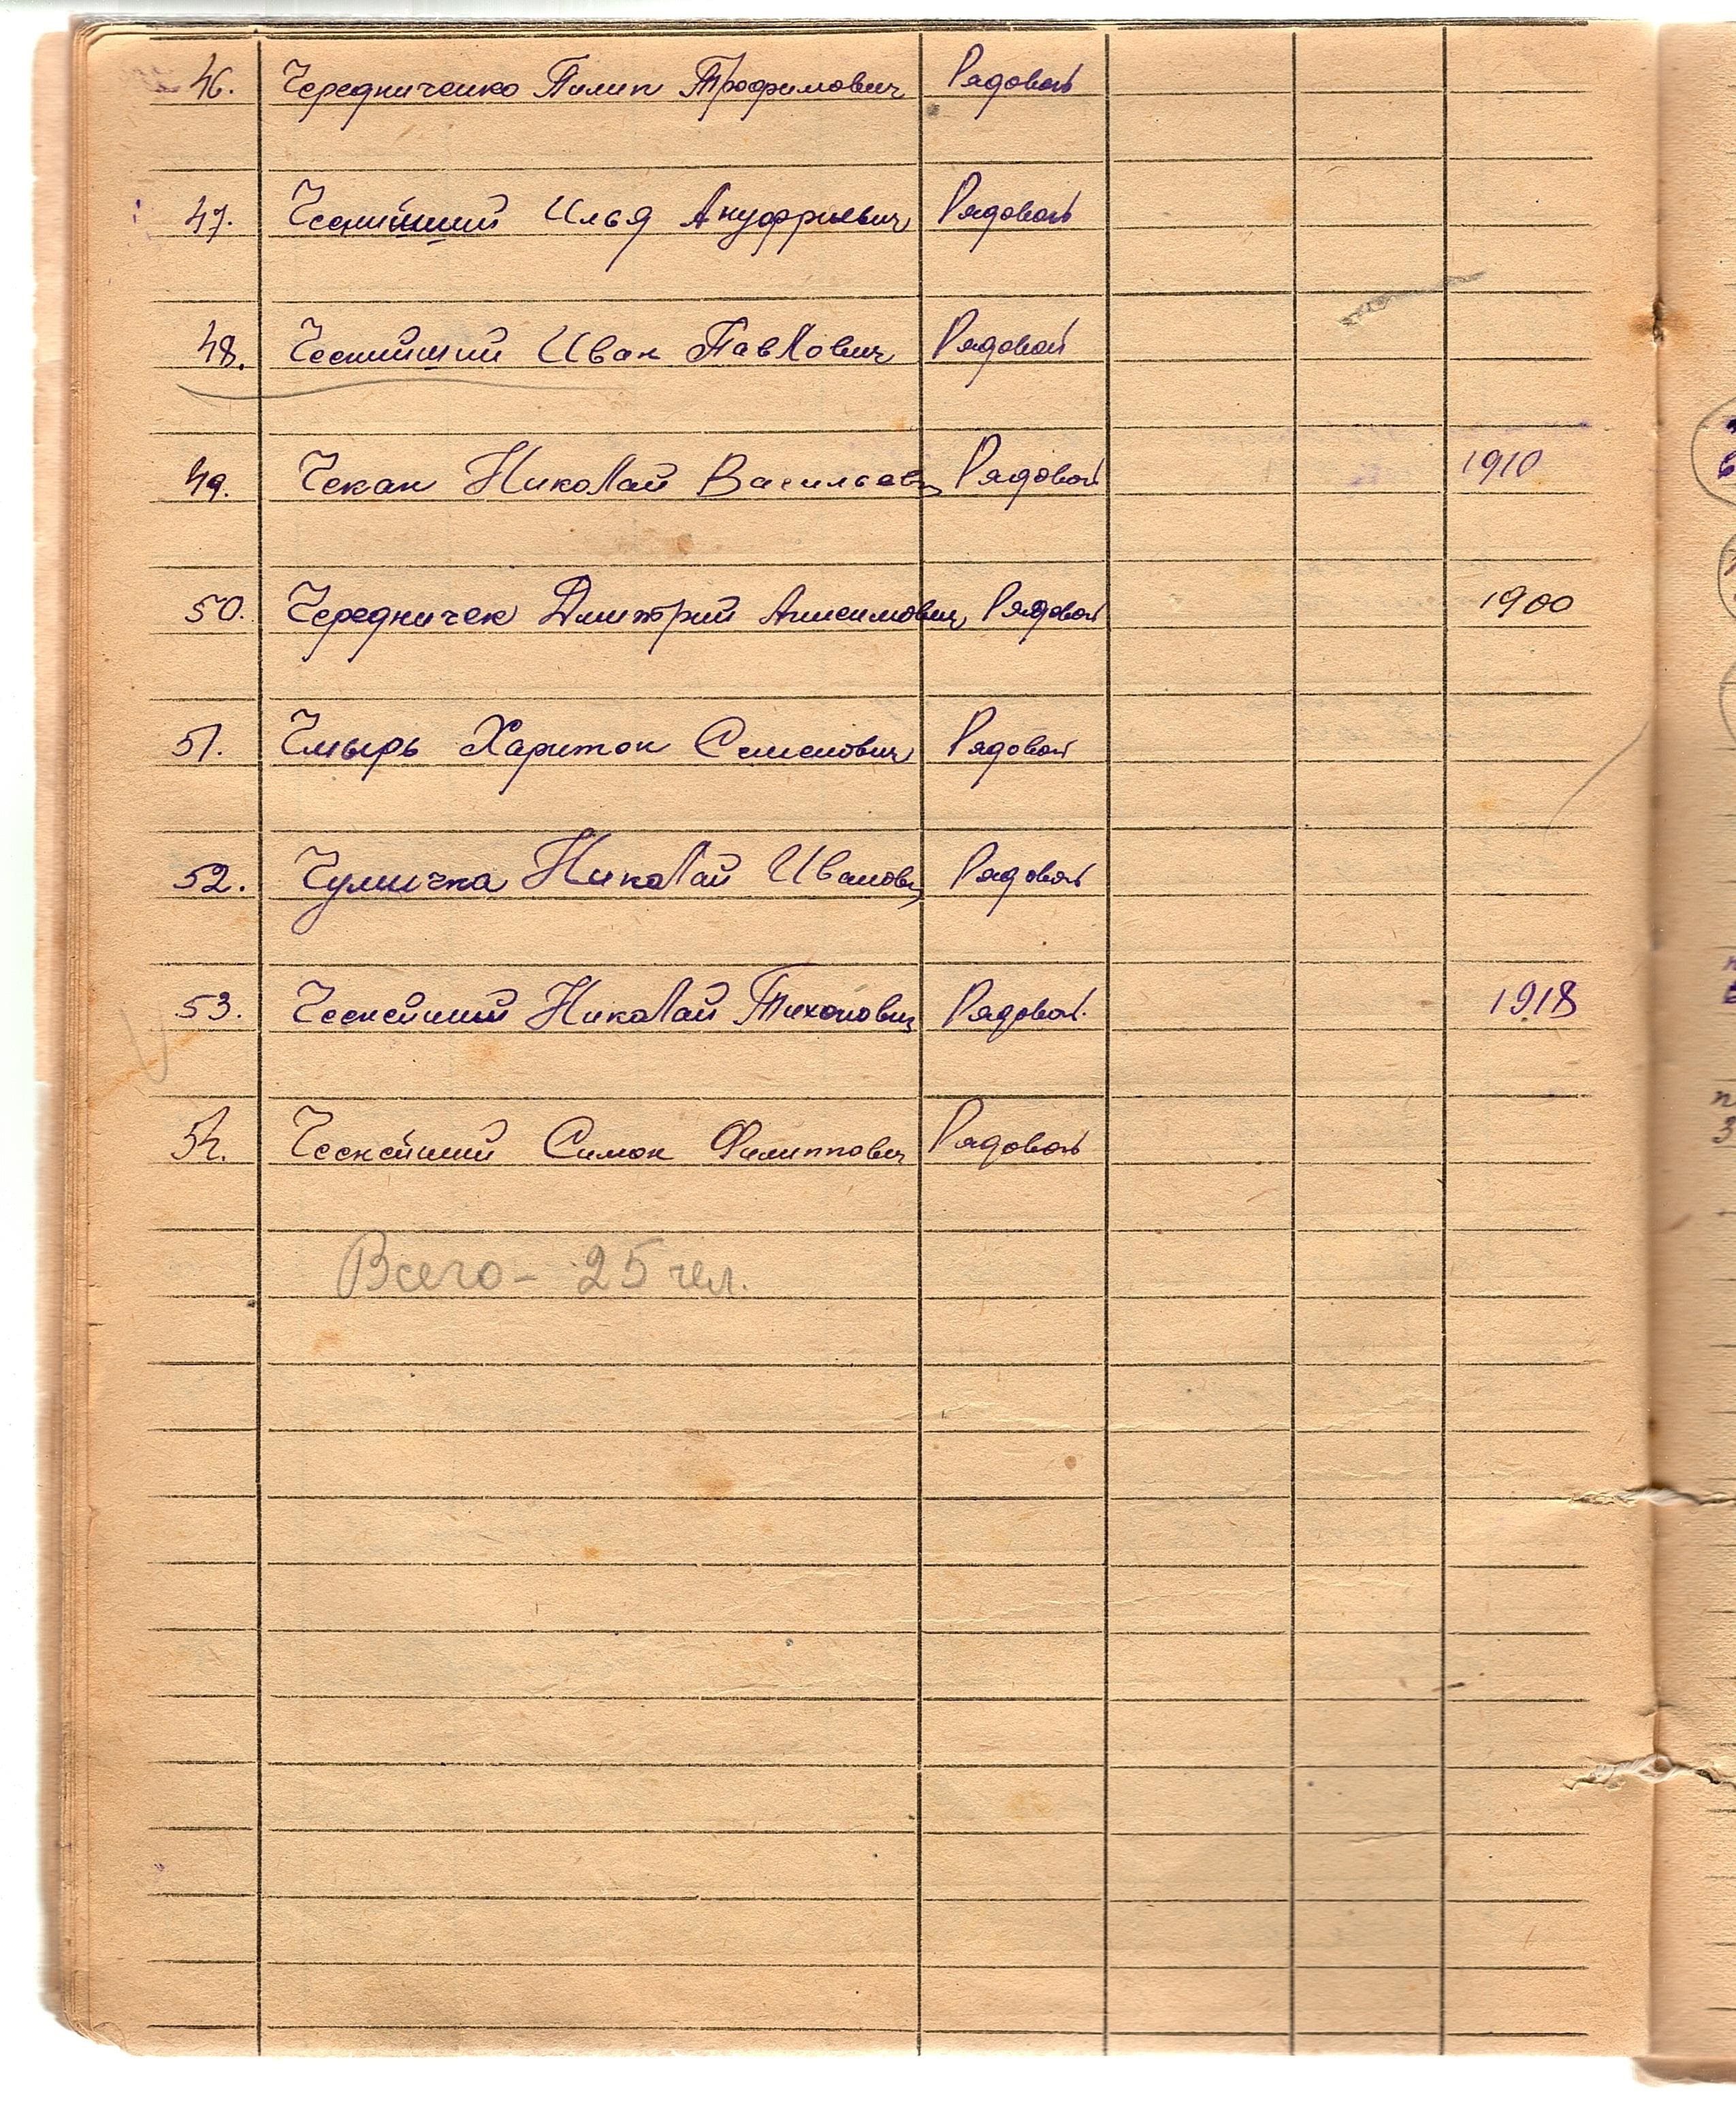 46. Чередниченко Пилип Трофимович Рядовой
47. Илья Ануфриевич Рядовой
48. Иван Павлович Рядовой
49. Чекан Николай Васильев Рядовой 1910
50. Чередничек Дмитрий Анисимович Рядовой 1900
51. Чмырь Харитон Семенович Рядовой
52. Чумичка Николай Иванович Рядовой
53. Ческейший Николай Тихонович Рядовой. 1918
54. Ческейший Симон Филиппович Рядовой
Всего - 25 чел.